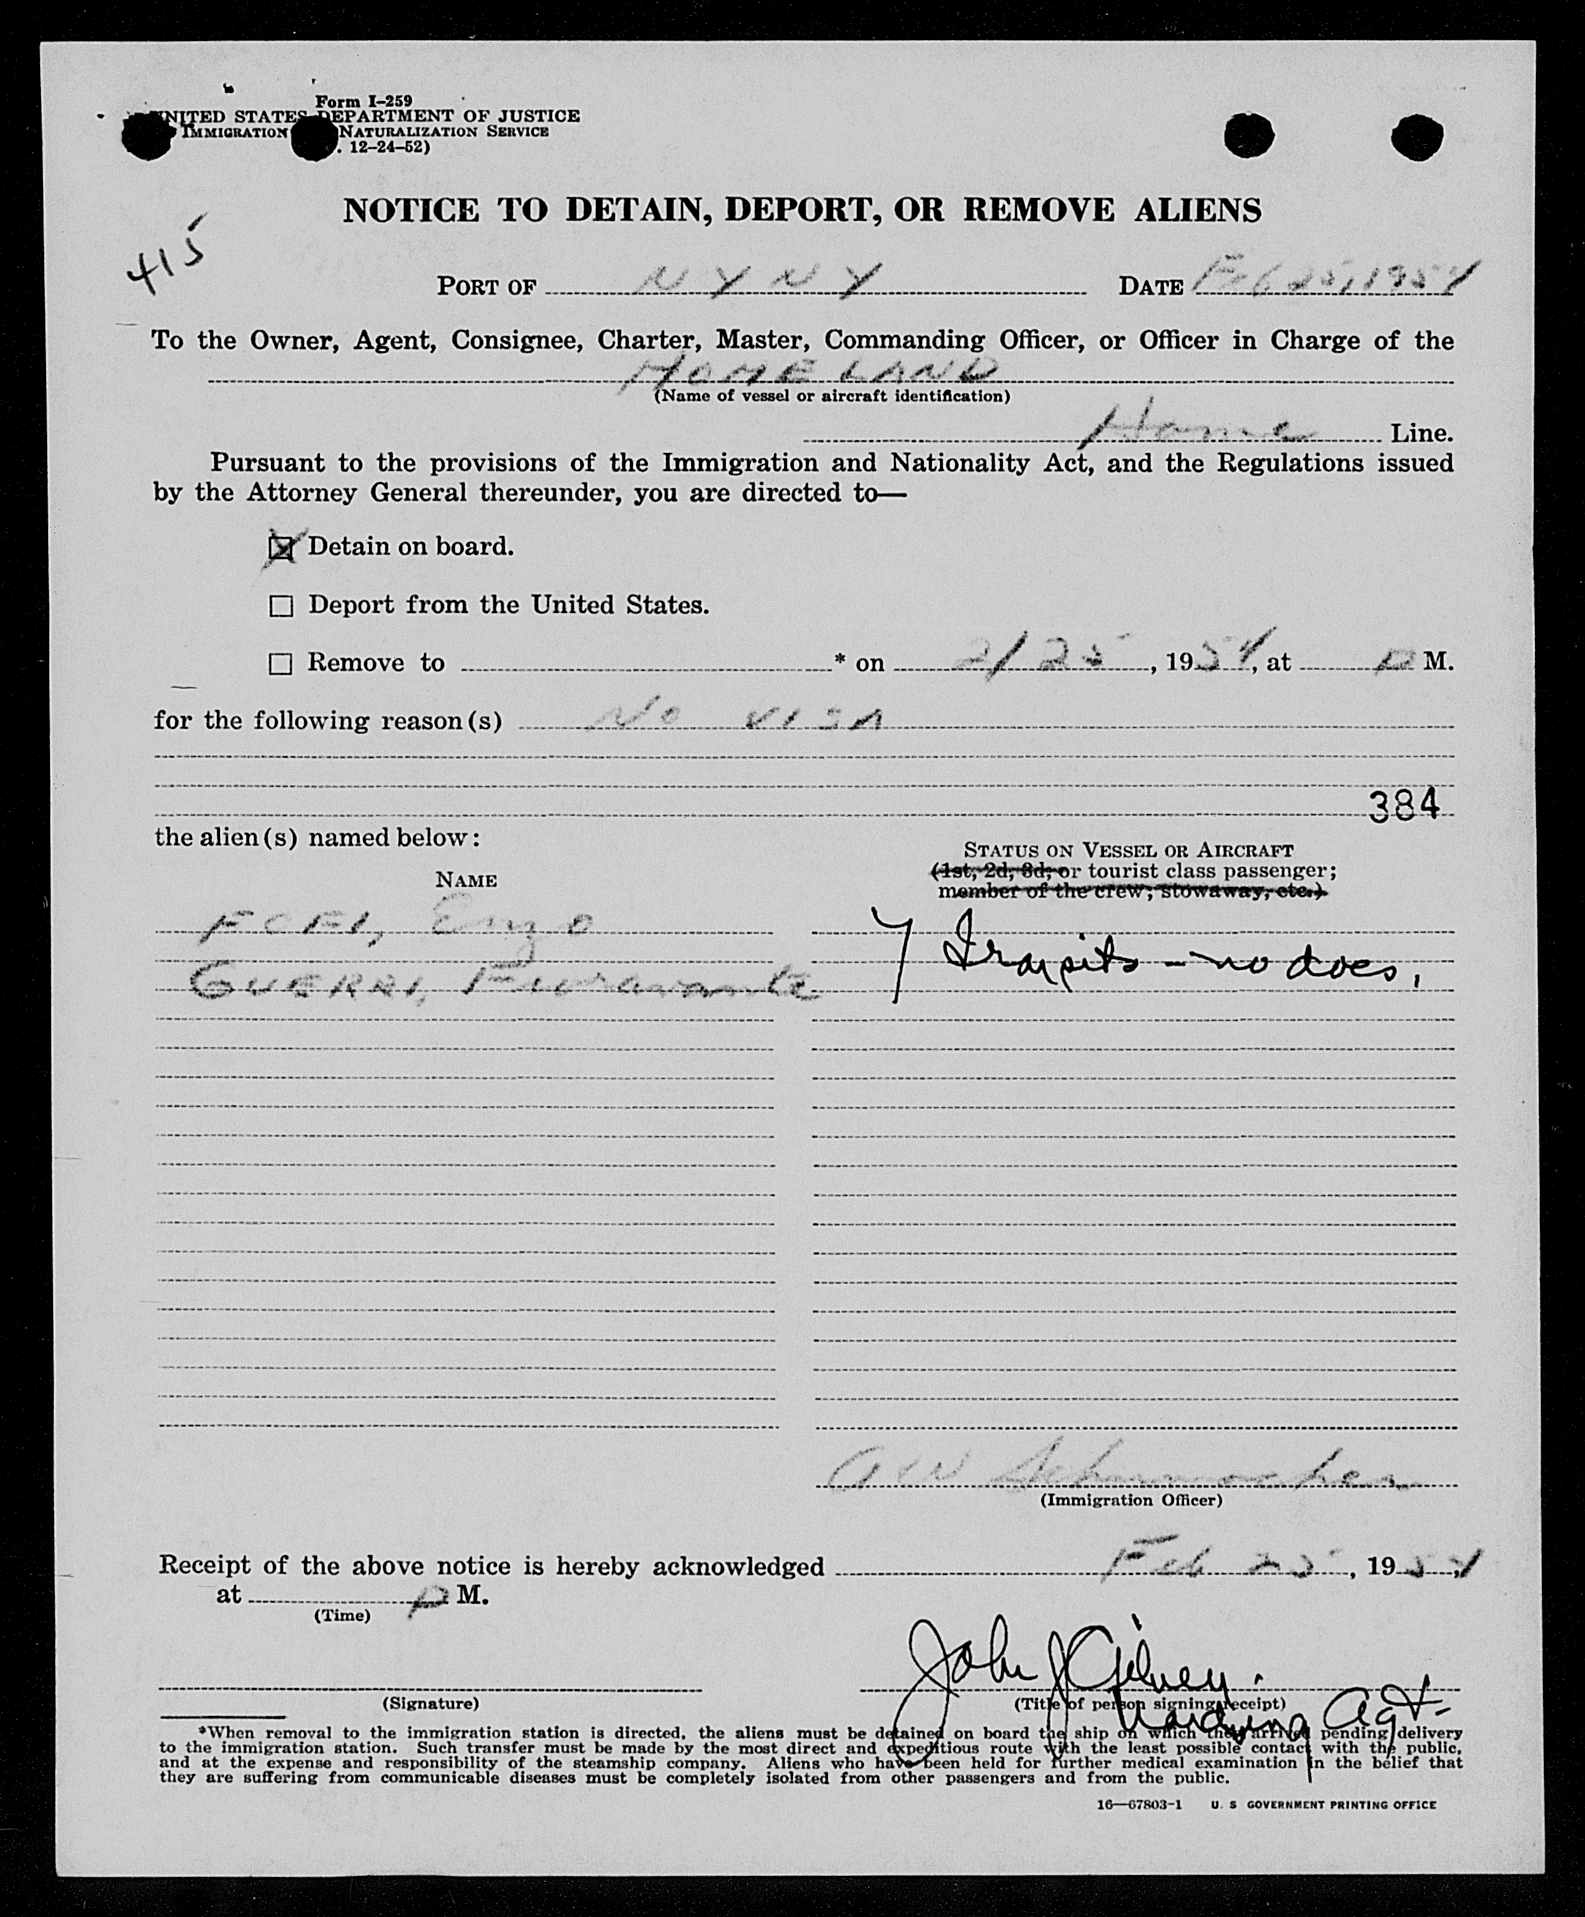 Form I-259
UNITED STATES DEPARTMENT OF JUSTICE
IMMIGRATION NATURALIZATION SERVICE
. 12-24-52)
NOTICE TO DETAIN, DEPORT, OR REMOVE ALIENS
415
PORT OF N Y N Y DATE Feb 25, 1954
To the Owner, Agent, Consignee, Charter, Master, Commanding Officer, or Officer in Charge of the
HOMELAND
(Name of vessel or aircraft identification)
Home Line.
Pursuant to the provisions of the Immigration and Nationality Act, and the Regulations issued
by the Attorney General thereunder, you are directed to—
☒ Detain on board.
☐ Deport from the United States.
☐ Remove to * on 2/25, 1954, at P M.
for the following reason(s) No VISA
384
the alien(s) named below:
STATUS ON VESSEL OR AIRCRAFT
(1st, 2d, 3d, or tourist class passenger;
member of the crew; stowaway, etc.)
NAME
FOFI, Enzo
GUERRI, Fioravante
} Transits - no docs.
A W Schumacher
(Immigration Officer)
Receipt of the above notice is hereby acknowledged Feb 25, 1954,
at P M.
(Time)
John J
(Signature) (Title of person signing receipt)
Agt-
*When removal to the immigration station is directed, the aliens must be detained on board the ship on which they arrived pending delivery
to the immigration station. Such transfer must be made by the most direct and expeditious route with the least possible contact with the public,
and at the expense and responsibility of the steamship company. Aliens who have been held for further medical examination in the belief that
they are suffering from communicable diseases must be completely isolated from other passengers and from the public.
16—67803-1 U. S GOVERNMENT PRINTING OFFICE